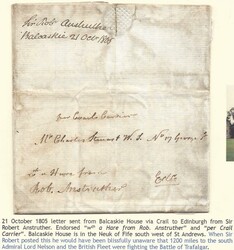 Sir Rob. Anstruther
Balcaskie 21 Oct 1805
per Crail Carrier
Mr Charles Stewart W.S. No 07 George St
Edin
wt a Hare from
Rob. Anstruther
21 October 1805 letter sent from Balcaskie House via Crail to Edinburgh from Sir
Robert Anstruther. Endorsed "wt a Hare from Rob. Anstruther" and "per Crail
Carrier". Balcaskie House is in the Neuk of Fife south west of St Andrews. When Sir
Robert posted this he would have been blissfully unaware that 1200 miles to the south
Admiral Lord Nelson and the British Fleet were fighting the Battle of Trafalgar.